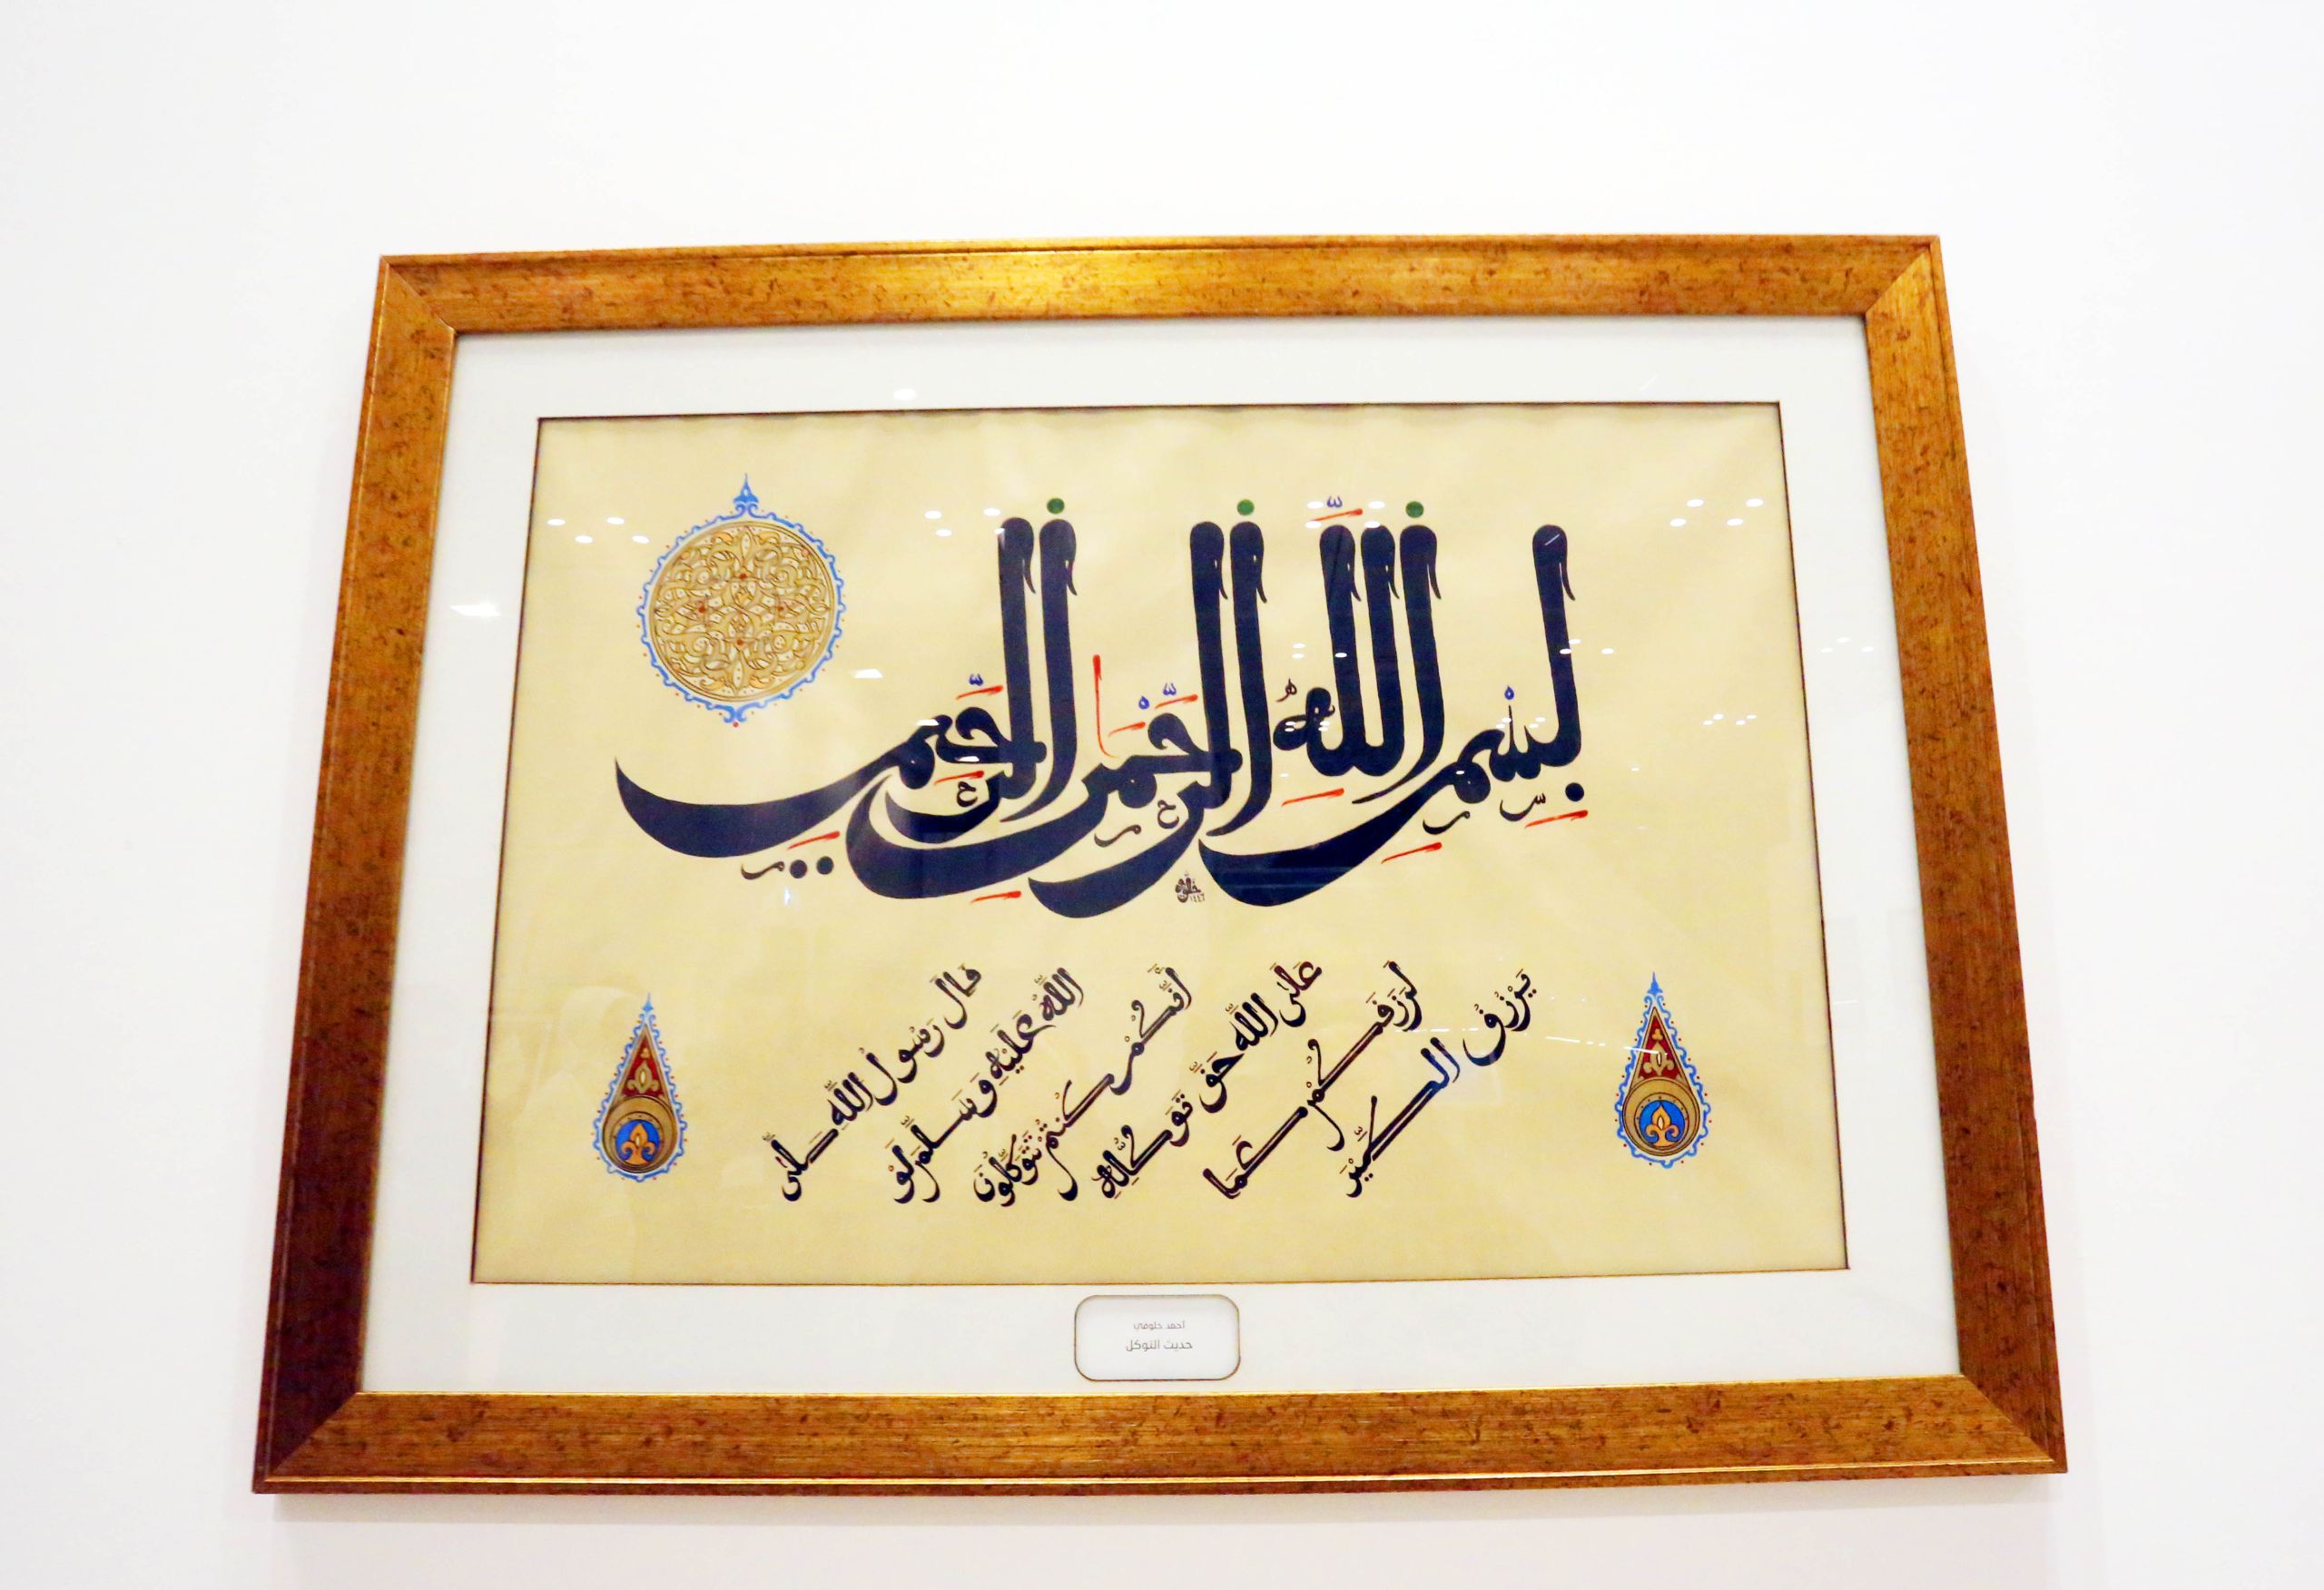 بِسْمِ اللَّهِ الرَّحْمَٰنِ الرَّحِيمِ
قَالَ رَسُولُ اللَّهِ صَلَّى
اللَّهُ عَلَيْهِ وَسَلَّمَ لَوْ
أَنَّكُمْ كُنْتُمْ تَتَوَكَّلُونَ
عَلَى اللَّهِ حَقَّ تَوَكُّلِهِ
لَرَزَقَكُمْ كَمَا
يَرْزُقُ الطَّيْرَ
أحمد خلوفي
حديث التوكل